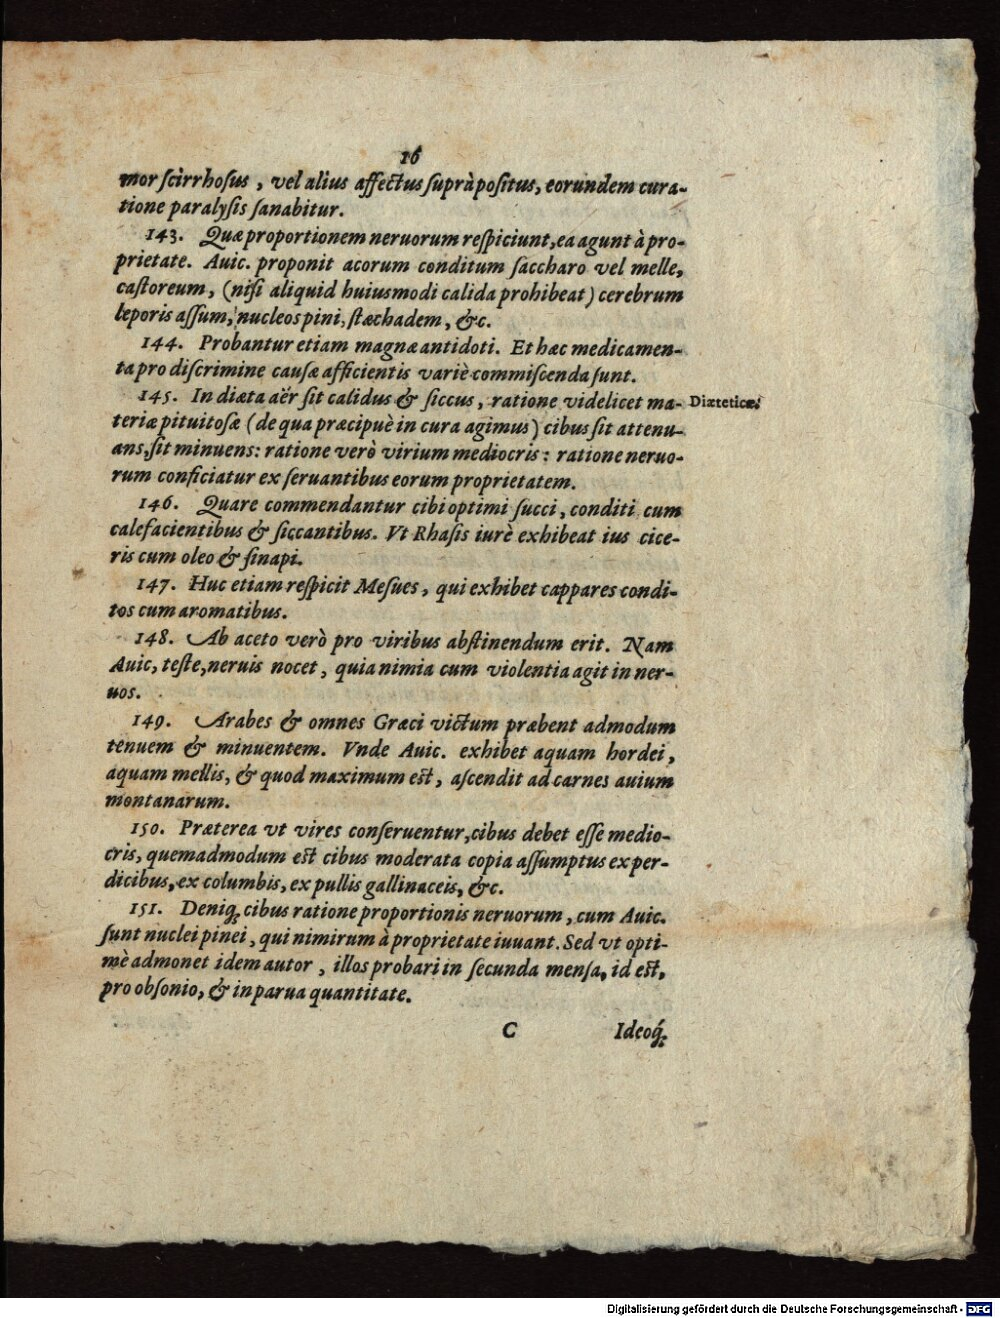 16
mor scirrhosus, vel alius affectus supràpositus, eorundem cura-
tione paralysis sanabitur.
143. Quæ proportionem neruorum respiciunt, ea agunt à pro-
prietate. Auic. proponit acorum conditum saccharo vel melle,
castoreum, (nisi aliquid huiusmodi calida prohibeat) cerebrum
leporis assum, nucleos pini, stæchadem, &c.
144. Probantur etiam magnæ antidoti. Et hæc medicamen-
ta pro discrimine causæ afficientis variè commiscenda sunt.
145. In diæta aër sit calidus & siccus, ratione videlicet ma-
teriæ pituitosæ (de qua præcipuè in cura agimus) cibus sit attenu-
ans, sit minuens: ratione verò virium mediocris: ratione neruo-
rum conficiatur ex seruantibus eorum proprietatem.
Diæteticæ.
146. Quare commendantur cibi optimi succi, conditi cum
calefacientibus & siccantibus. Vt Rhasis iurè exhibeat ius cice-
ris cum oleo & sinapi.
147. Huc etiam respicit Mesues, qui exhibet cappares condi-
tos cum aromatibus.
148. Ab aceto verò pro viribus abstinendum erit. Nam
Auic, teste, neruis nocet, quia nimia cum violentia agit in ner-
uos.
149. Arabes & omnes Græci victum præbent admodum
tenuem & minuentem. Vnde Auic. exhibet aquam hordei,
aquam mellis, & quod maximum est, ascendit ad carnes auium
montanarum.
150. Præterea vt vires conseruentur, cibus debet esse medio-
cris, quemadmodum est cibus moderata copia assumptus ex per-
dicibus, ex columbis, ex pullis gallinaceis, &c.
151. Deniq; cibus ratione proportionis neruorum, cum Auic.
sunt nuclei pinei, qui nimirum à proprietate iuuant. Sed vt opti-
mè admonet idem autor, illos probari in secunda mensa, id est,
pro obsonio, & in parua quantitate.
C Ideoq́;
Digitalisierung gefördert durch die Deutsche Forschungsgemeinschaft - DFG